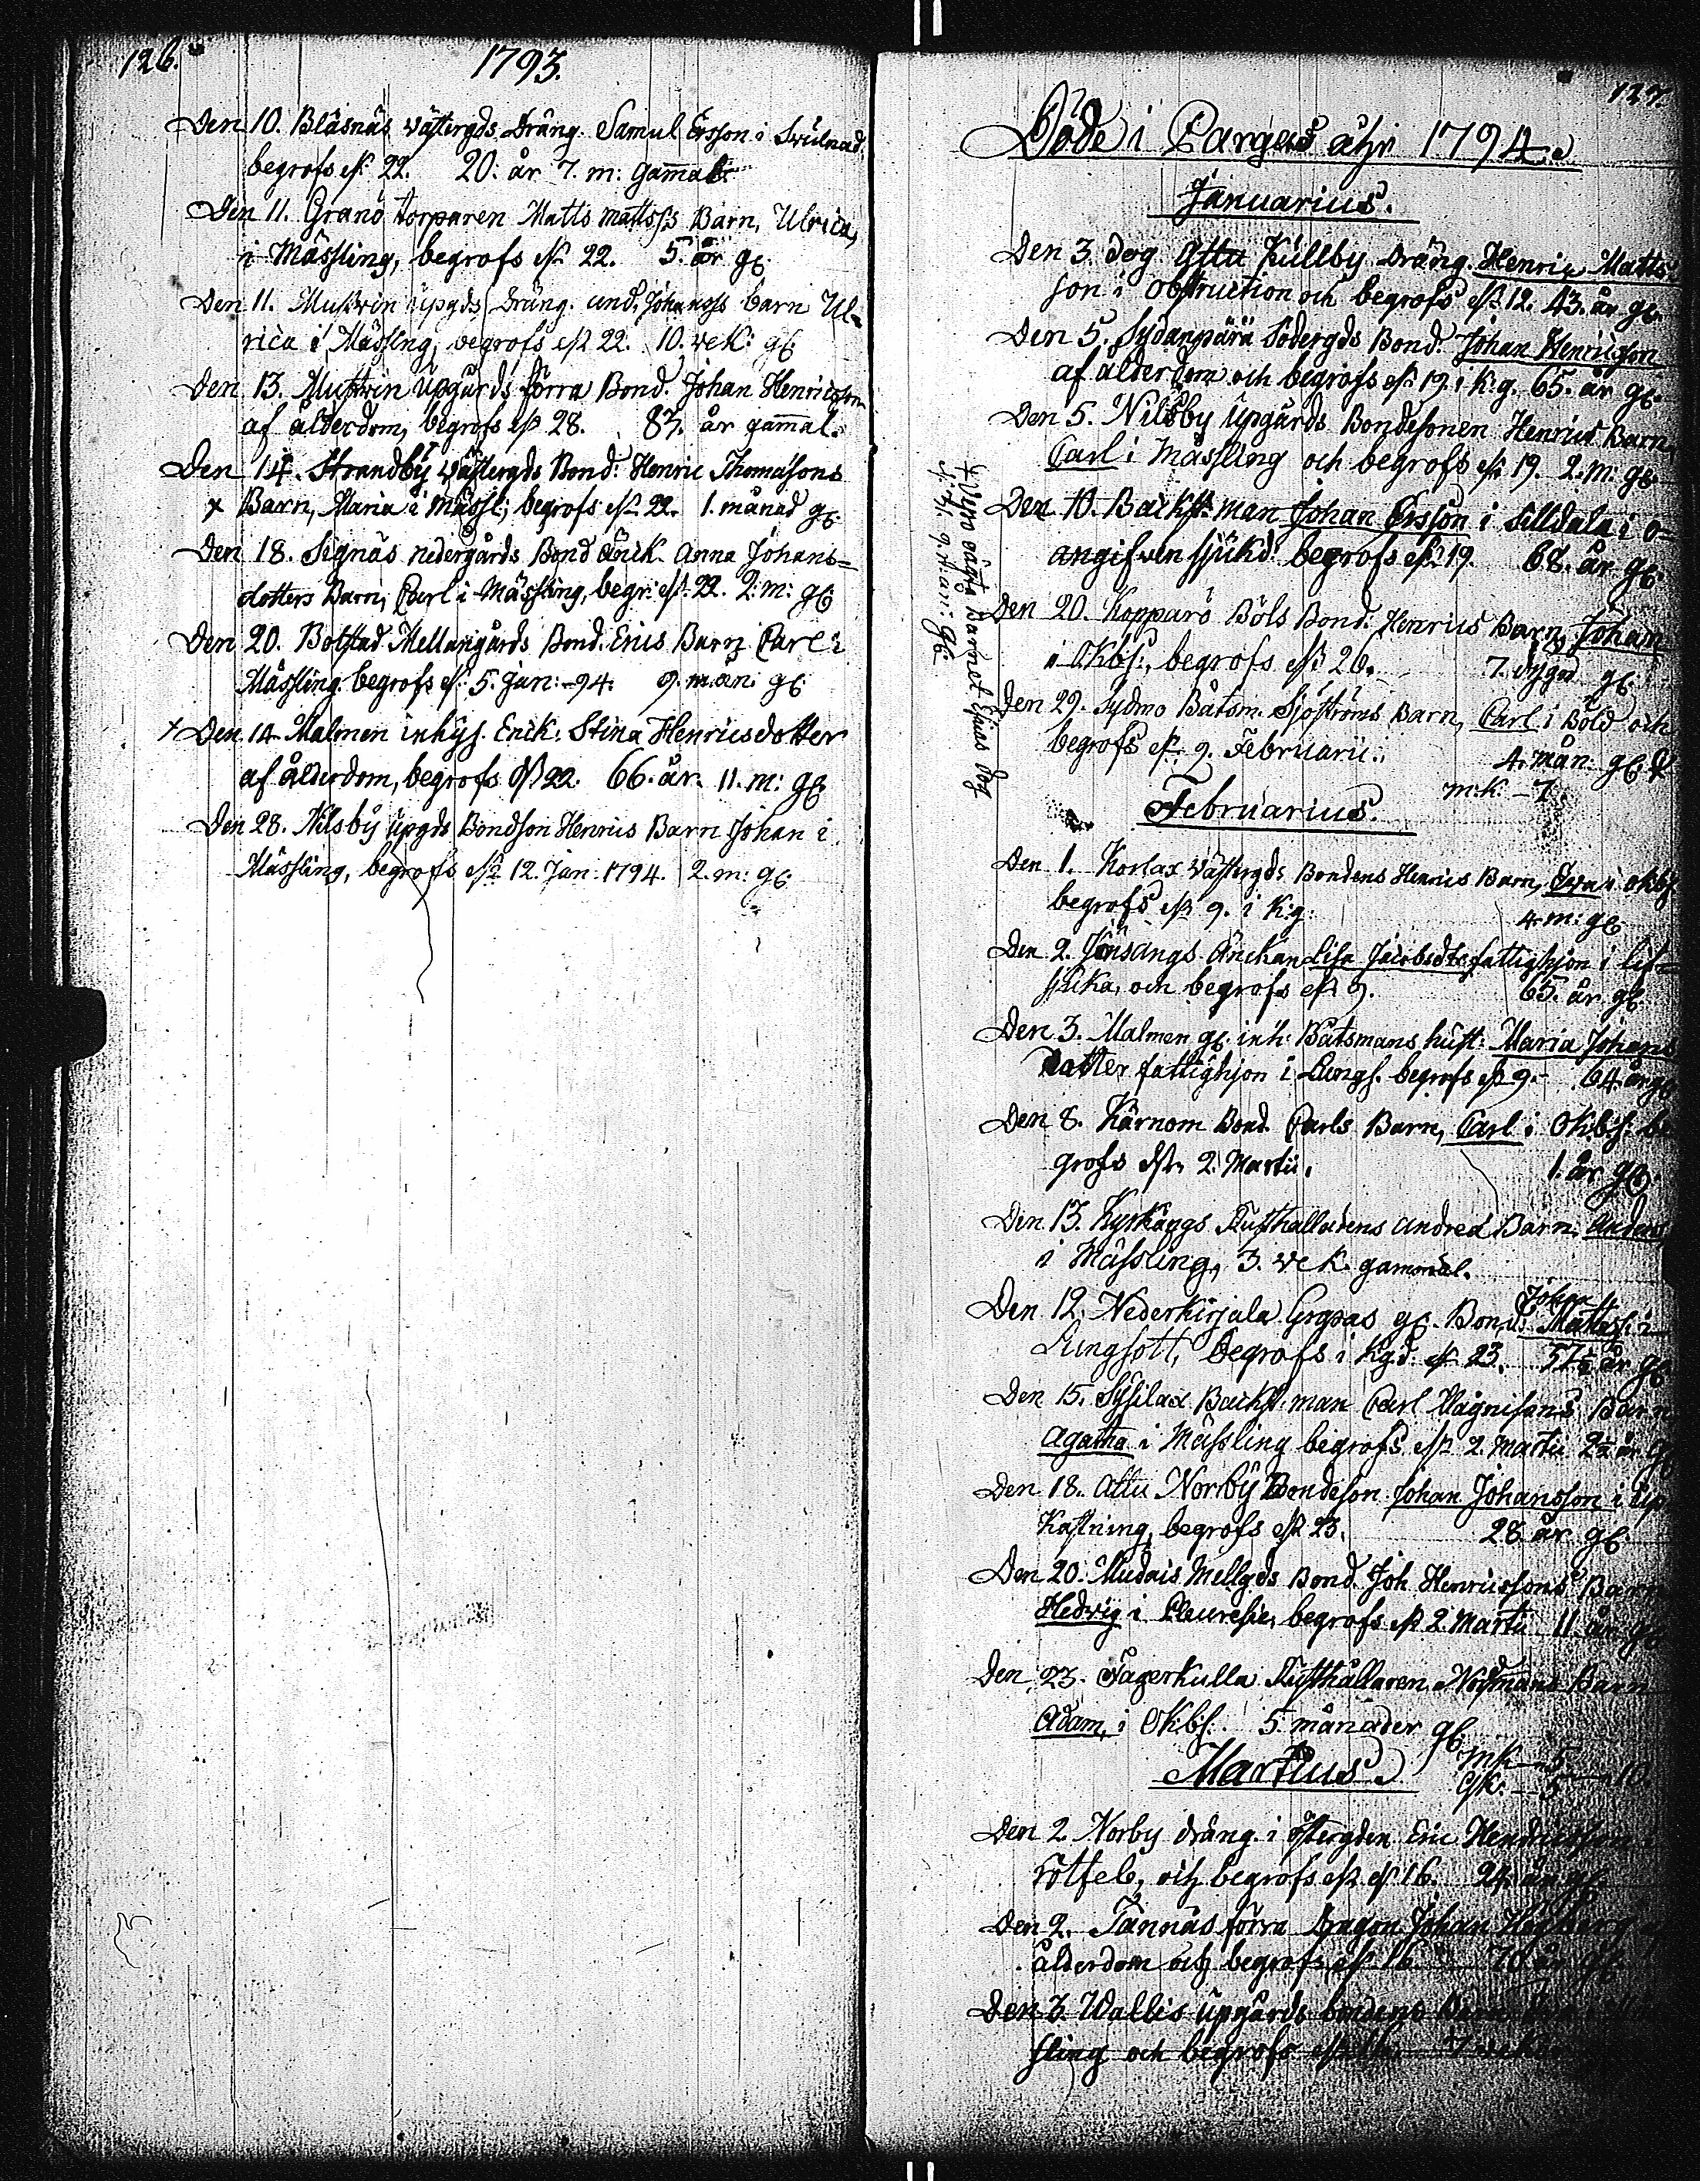 126.
1793.
Den 10. Bläsnäs wästergds Dräng. Samul Ersson i
begrofs es: 22. 20. år 7. m: gammal.
Den 11. Granö torparen Matts mattss's Barn, Ulrica,
i Mässling, begrofs es: 22. 5. år gl.
Den 11. Muddvin upgds Dräng. And. Johanss's barn Ul-
rica i Mässlng, begrofs es: 22. 10. wek: gl:
Den 13. upgårds förra Bond. Johan Henricsson
af ålderdom, begrofs es: 28. 83. år gammal.
Den 14. Strandby wästergds Bond: Henric Thomasons
x Barn, Maria i Mässl; begrofs es: 22. 1. månad gl.
Den 18. Signäs nedergårds Bond änck. Anna Johans-
dotters Barn, Carl i Mässling, begr: es: 22. 2. m: gl:
Den 20. Bolstad Mellangårds Bond. Erics Barn Carl i
Mässling begrofs es: 5. Jan: -94. 9. mån. gl:
x Den 14. Malmen inhys. Enck. Stina Henricsdotter
af ålderdom, begrofs es: 22. 66. år. 11. m: gl.
Den 28. Nilsby upgds Bondson Henrics Barn Johan i
Mässling, begrofs es: 12. Jan. 1794. 2. m: gl.
127.
Döde i Pargas åhr 1794.
Januarius.
Den 3. dog Attu Küllby Dräng. Henric Matts-
son i obstruction och begrofs es: 12. 43. år gl.
Den 5. Sydänperä Södergds Bond. Johan Henricsson
af ålderdom och begrofs es: 19. i K:g. 65. år gl.
Den 5. Nilsby upgårds Bondesonen Henrics Barn,
Carl i Mässling och begrofs es: 19. 2. m: gl.
Den 10. Backst: man Johan Ersson i Silldala i o-
angifven sjukd: begrofs es: 19. 68. år gl.
Den 20. Kopparö Böls Bond. Henrics Barn, Johan
i Okb:s:, begrofs es: 26. 7. dygn gl.
Den 29. Sydmo Båtsm. Sjöströms Barn, Carl i Böld och
begrofs es: 9. Februarii. 4. mån: gl.
m.k. - 7.
Barnet
dog
Februarius.
Den 1. Korlax Wästergds Bondens Henrics Barn, Ewa i okbs.
begrofs es: 9. i K:g: 4. m: gl.
Den 2. Jönsängs Änckan Lisa Jacobsdtr fattighjon i lef-
siuka, och begrofs es: 9. 65. år gl.
Den 3. Malmen gl. inh: Båtsmans hust: Maria Johans
dotter fattighjon i Lungs. begrofs es: 9. 64 år gl
Den 8. Kärnom Bond. Carls Barn, Carl i Okbs: be
grofs es: 2. Martii. 1. år gl.
Den 13. Kyrkängs Rusthållarens Andreæ Barn, Anders
i Mässling, 3. wek. gammal.
Johan
Den 12. Nederkirjala Grgpas gl. Bond. Mattss. i
Lungsott, begrofs i Kgd. es: 23. 57½ år gl
Den 15. Sysilax Backst. man Carl Magnisons Barn
Agatha i Mässling begrofs es: 2. Martii 2½ år gl
Den 18. Attu Norrby Bondeson Johan Johansson i Up
Kastning, begrofs es: 23. 28 år gl.
Den 20. Mudais Mellgds Bond. Joh. Henricssons Barn
Hedvig i Pleuresie, begrofs es: 2. Martii 11 år gl
Den 23. Fagerkulla Rusthållaren Nordmans Barn
Adam, i Okbs: 5. månader gl.
Martius.
mk - 5
qk: - 5 - 10.
Den 2. Norby dräng. i östergden Eric Hendricsson i
rötfeb, och begrofs es: 16. 24 år gl.
Den 2. Tännäs förra Dragon Johan
ålderdom och begrofs es: 16. 70 år gl.
Den 3. Wallis upgårds bondens
sling och begrofs